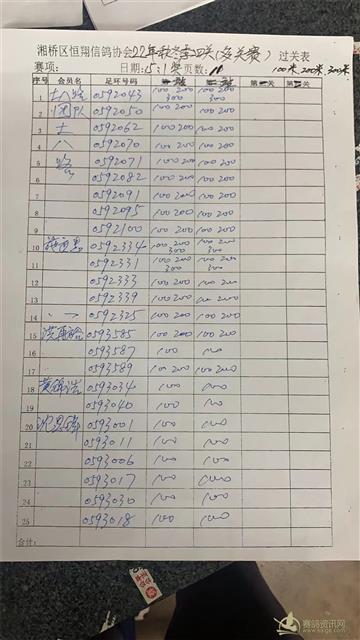 湘桥区恒翔信鸽协会22年秋季四关(多关赛) 过关表
赛项: 日期:15:1 页数: 100米,200米,300米
序号 会员名 足环号码 第一关 第二关
1 十八路 0592043 100 200 300 100 200 300
2 团队 0592050 100 200 100 200
3 十 0592062 100 200 100 200
4 八 0592070 100 200 100 200
5 路 0592071 100 200 100 200
6 0592082 100 200 100 200
7 0592091 100 200 100 200
8 0592095 100 200 100 200
9 0592100 100 200 100 200
10 0592334 100 200 300 100 200 300
11 0592331 100 200 300 100 200 300
12 0592333 100 200 100 200
13 0592339 100 200 100 200
14 0592325 100 200 100 200
15 0593585 100 200 100 200
16 0593587 100 100
17 0593589 100 200 100 200
18 黄锦浩 0593034 100 100
19 0593040 100 100
20 0593001 100 100
21 0593011 100 100
22 0593006 100 100
23 0593017 100 100
24 0593030 100 100
25 0593018 100 100
合计:
赛鸽资讯网
www.saige.com